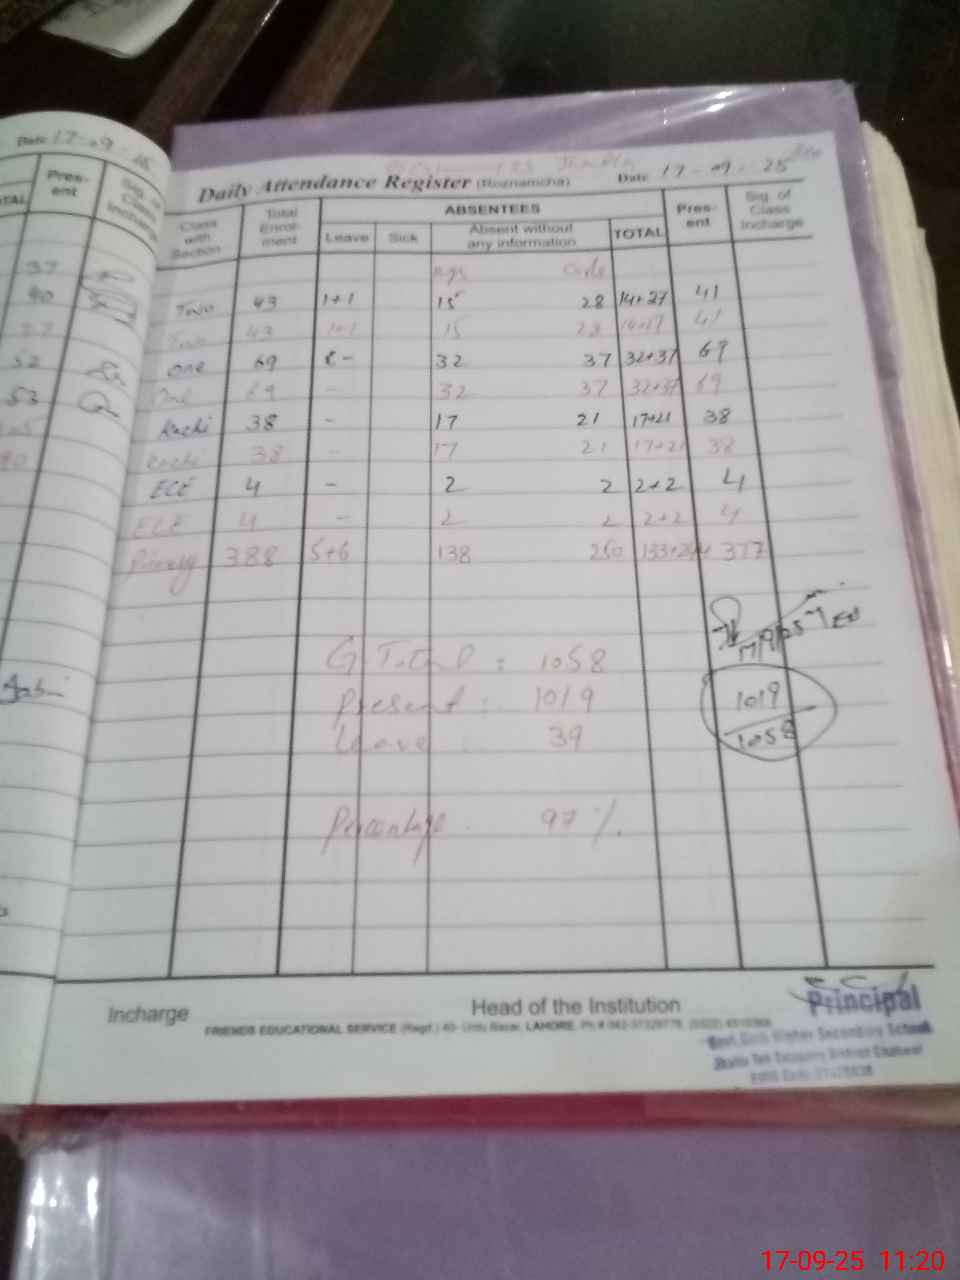 Date 17-09-25
TOTAL
Pres-ent
Sig. of Class Incharge
37
40
52
53
Daily Attendance Register (Roznamcha) Date 17-09-25
Class with Section Total Enrol-ment ABSENTEES Pres-ent Sig. of Class Incharge
Leave Sick Absent without any information TOTAL
Two 43 1+1 15 28 14+27 41
Two 43 1+1 15 28 14+27 41
One 69 - 32 37 32+37 69
One 69 - 32 37 32+37 69
Kachi 38 - 17 21 17+21 38
Kachi 38 - 17 21 17+21 38
ECE 4 - 2 2 2+2 4
ECE 4 - 2 2 2+2 4
Primary 388 5+6 138 250 377
G. Total : 1058
Present : 1019
Leave : 39
1019
1058
Percentage 97 %.
Incharge Head of the Institution
Principal
FRIENDS EDUCATIONAL SERVICE (Regd.) 40- Urdu Bazar, LAHORE.
Govt. Girls Higher Secondary School
17-09-25 11:20